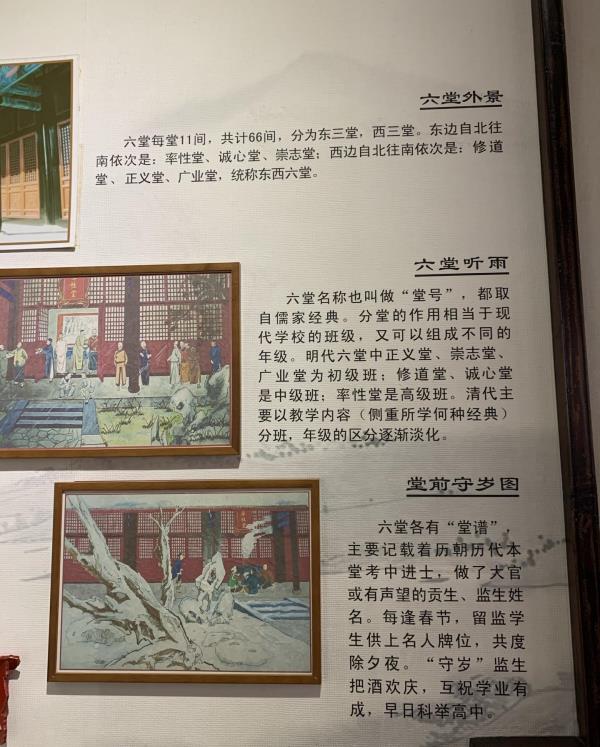 六堂外景
六堂每堂11间，共计66间，分为东三堂，西三堂。东边自北往
南依次是：率性堂、诚心堂、崇志堂；西边自北往南依次是：修道
堂、正义堂、广业堂，统称东西六堂。
六堂听雨
六堂名称也叫做“堂号”，都取
自儒家经典。分堂的作用相当于现
代学校的班级，又可以组成不同的
年级。明代六堂中正义堂、崇志堂、
广业堂为初级班；修道堂、诚心堂
是中级班；率性堂是高级班。清代主
要以教学内容（侧重所学何种经典）
分班，年级的区分逐渐淡化。
堂前守岁图
六堂各有“堂谱”，
主要记载着历朝历代本
堂考中进士，做了大官
或有声望的贡生、监生姓
名。每逢春节，留监学
生供上名人牌位，共度
除夕夜。“守岁”监生
把酒欢庆，互祝学业有
成，早日科举高中。